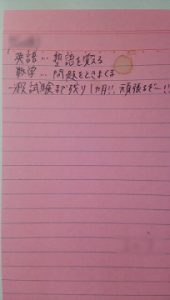 英語…単語を覚える
数学…問題をときまくる
一次試験まで残り1ヵ月!!頑張るぞー!!